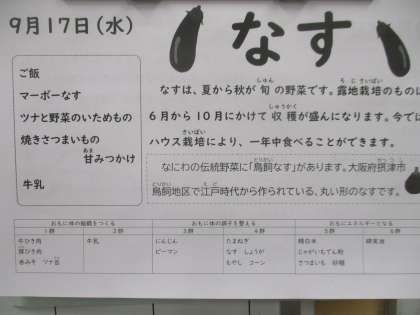 9月17日(水)
なす
ご飯
マーボーなす
ツナと野菜のいためもの
焼きさつまいもの
甘みつかけ
あま
牛乳
しゅん
ろじさいばい
なすは、夏から秋が旬の野菜です。露地栽培のものは
しゅうかく
6月から10月にかけて収穫が盛んになります。今では
さいばい
ハウス栽培により、一年中食べることができます。
とりかい
なにわの伝統野菜に「鳥飼なす」があります。大阪府摂津市
とりかい えど
鳥飼地区で江戸時代から作られている、丸い形のなすです。
おもに体の組織をつくる おもに体の調子を整える おもにエネルギーとなる
1群 2群 3群 4群 5群 6群
牛ひき肉 牛乳 にんじん たまねぎ 精白米 綿実油
豚ひき肉 ピーマン なす しょうが じゃがいもでん粉
赤みそ ツナ缶 もやし コーン さつまいも 砂糖